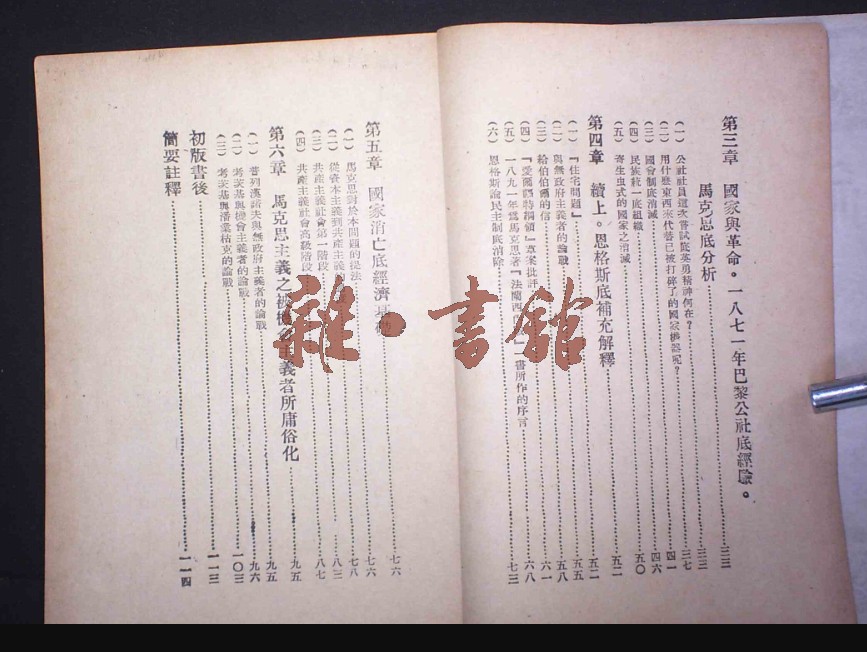 第三章 國家與革命。一八七一年巴黎公社底經驗。
馬克思底分析……三三
(一) 公社社員這次嘗試底英勇精神何在?……三七
(二) 用什麼東西來代替已被打碎了的國家機器呢?……四一
(三) 國會制底消滅……四六
(四) 民族統一底組織……五〇
(五) 寄生虫式的國家之消滅……五二
第四章 續上。恩格斯底補充解釋……五二
(一) 『住宅問題』……五五
(二) 與無政府主義者的論戰……五八
(三) 給伯伯爾的信……六一
(四) 『愛爾福特綱領』草案批評……六八
(五) 一八九一年為馬克思著『法蘭西 』一書所作的序言
(六) 恩格斯論民主制底消除……七三
第五章 國家消亡底經濟基礎……七六
(一) 馬克思對於本問題的提法……七六
(二) 從資本主義到共產主義的……七八
(三) 共產主義社會第一階段……八三
(四) 共產主義社會高級階段……八七
第六章 馬克思主義之被機會主義者所庸俗化……九五
(一) 普列漢諾夫與無政府主義者的論戰……九五
(二) 考茨基與機會主義者的論戰……九六
(三) 考茨基與潘業枯克的論戰……一〇三
初版書後……一一三
簡要註釋……一一四
雜·書館